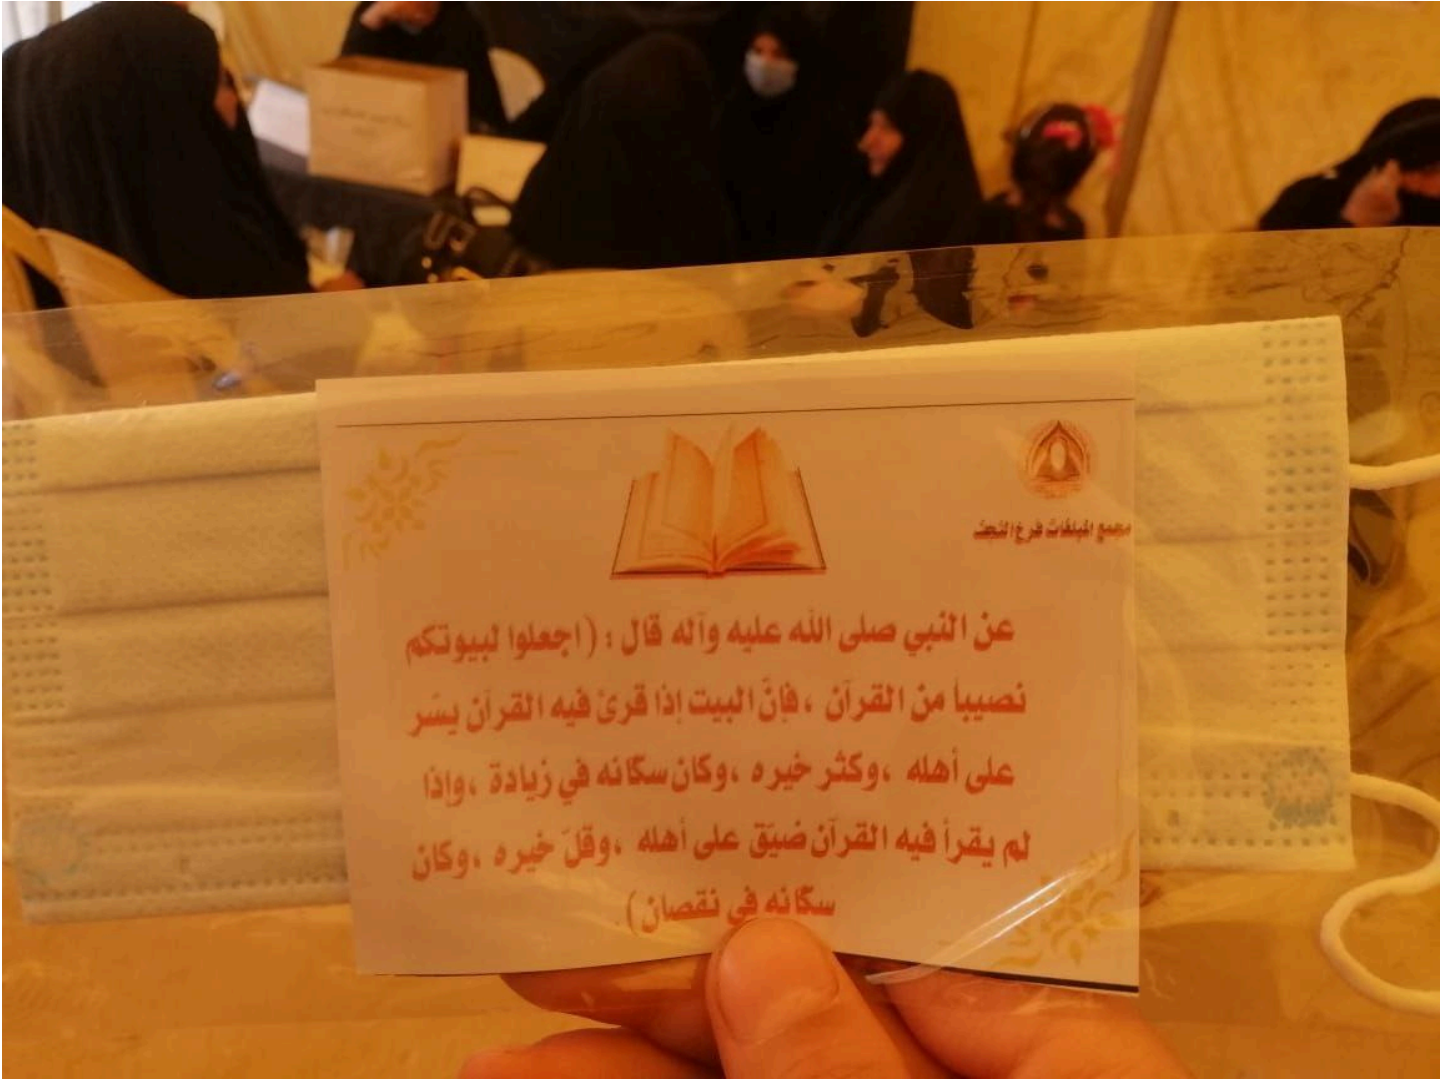 مجمع المبلغات فرع النجف
عن النبي صلى الله عليه وآله قال : ( اجعلوا لبيوتكم
نصيباً من القرآن ، فإنَّ البيت إذا قرئ فيه القرآن يسَّر
على أهله ،وكثر خيره ،وكان سكّانه في زيادة ،وإذا
لم يقرأ فيه القرآن ضيّق على أهله ،وقلّ خيره ،وكان
سكّانه في نقصان ).